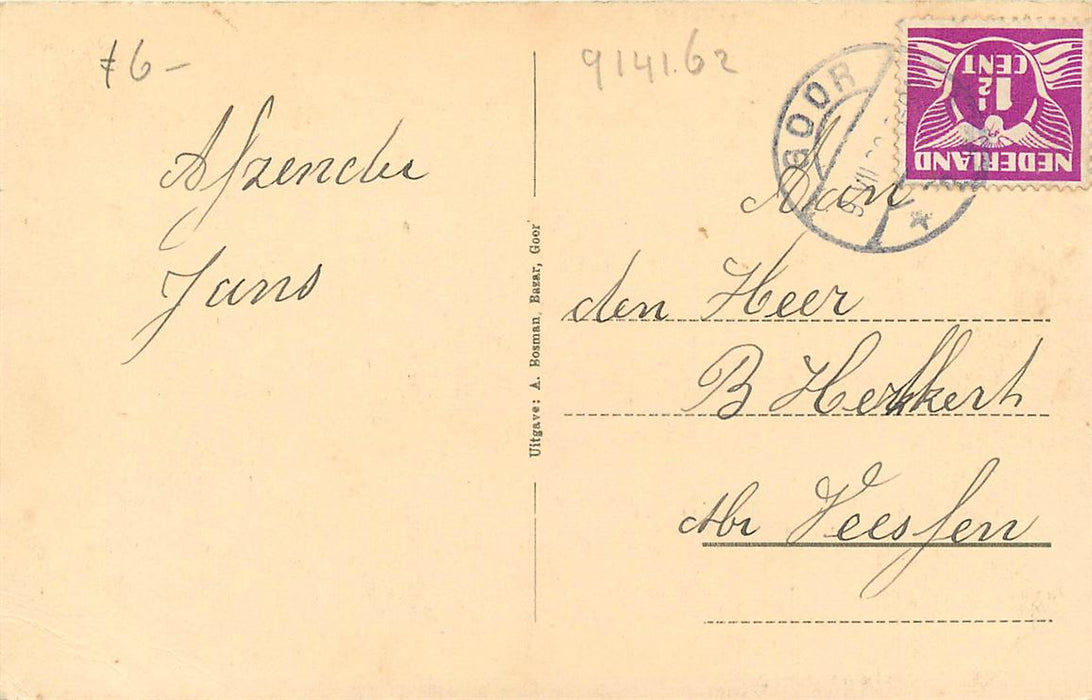 ƒ6-
Afzender
Jans
Uitgave: A. Bosman, Bazar, Goor
9141.62
GOOR
NEDERLAND
1½
CENT
Aan
den Heer
B Herkkert
Veessen